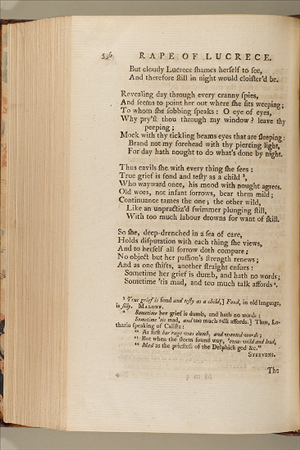 536 RAPE OF LUCRECE.
But cloudy Lucrece shames herself to see,
And therefore still in night would cloister'd be.
Revealing day through every cranny spies,
And seems to point her out where she sits weeping;
To whom she sobbing speaks: O eye of eyes,
Why pry'st thou through my window? leave thy
peeping;
Mock with thy tickling beams eyes that are sleeping:
Brand not my forehead with thy piercing light,
For day hath nought to do what's done by night.
Thus cavils she with every thing she sees:
True grief is fond and testy as a child ³,
Who wayward once, his mood with nought agrees.
Old woes, not infant sorrows, bear them mild;
Continuance tames the one; the other wild,
Like an unpractis'd swimmer plunging still,
With too much labour drowns for want of skill.
So she, deep-drenched in a sea of care,
Holds disputation with each thing she views,
And to herself all sorrow doth compare;
No object but her passion's strength renews;
And as one shifts, another straight ensues:
Sometime her grief is dumb, and hath no words;
Sometime 'tis mad, and too much talk affords ⁴.
³ True grief is fond and testy as a child,] Fond, in old language,
is silly. MALONE.
⁴ Sometime her grief is dumb, and hath no words;
Sometime 'tis mad, and too much talk affords.] Thus, Lo-
thario speaking of Calista:
" At first her rage was dumb, and wanted words;
" But when the storm found way, 'twas wild and loud,
" Mad as the priestess of the Delphick god &c."
STEEVENS.
The